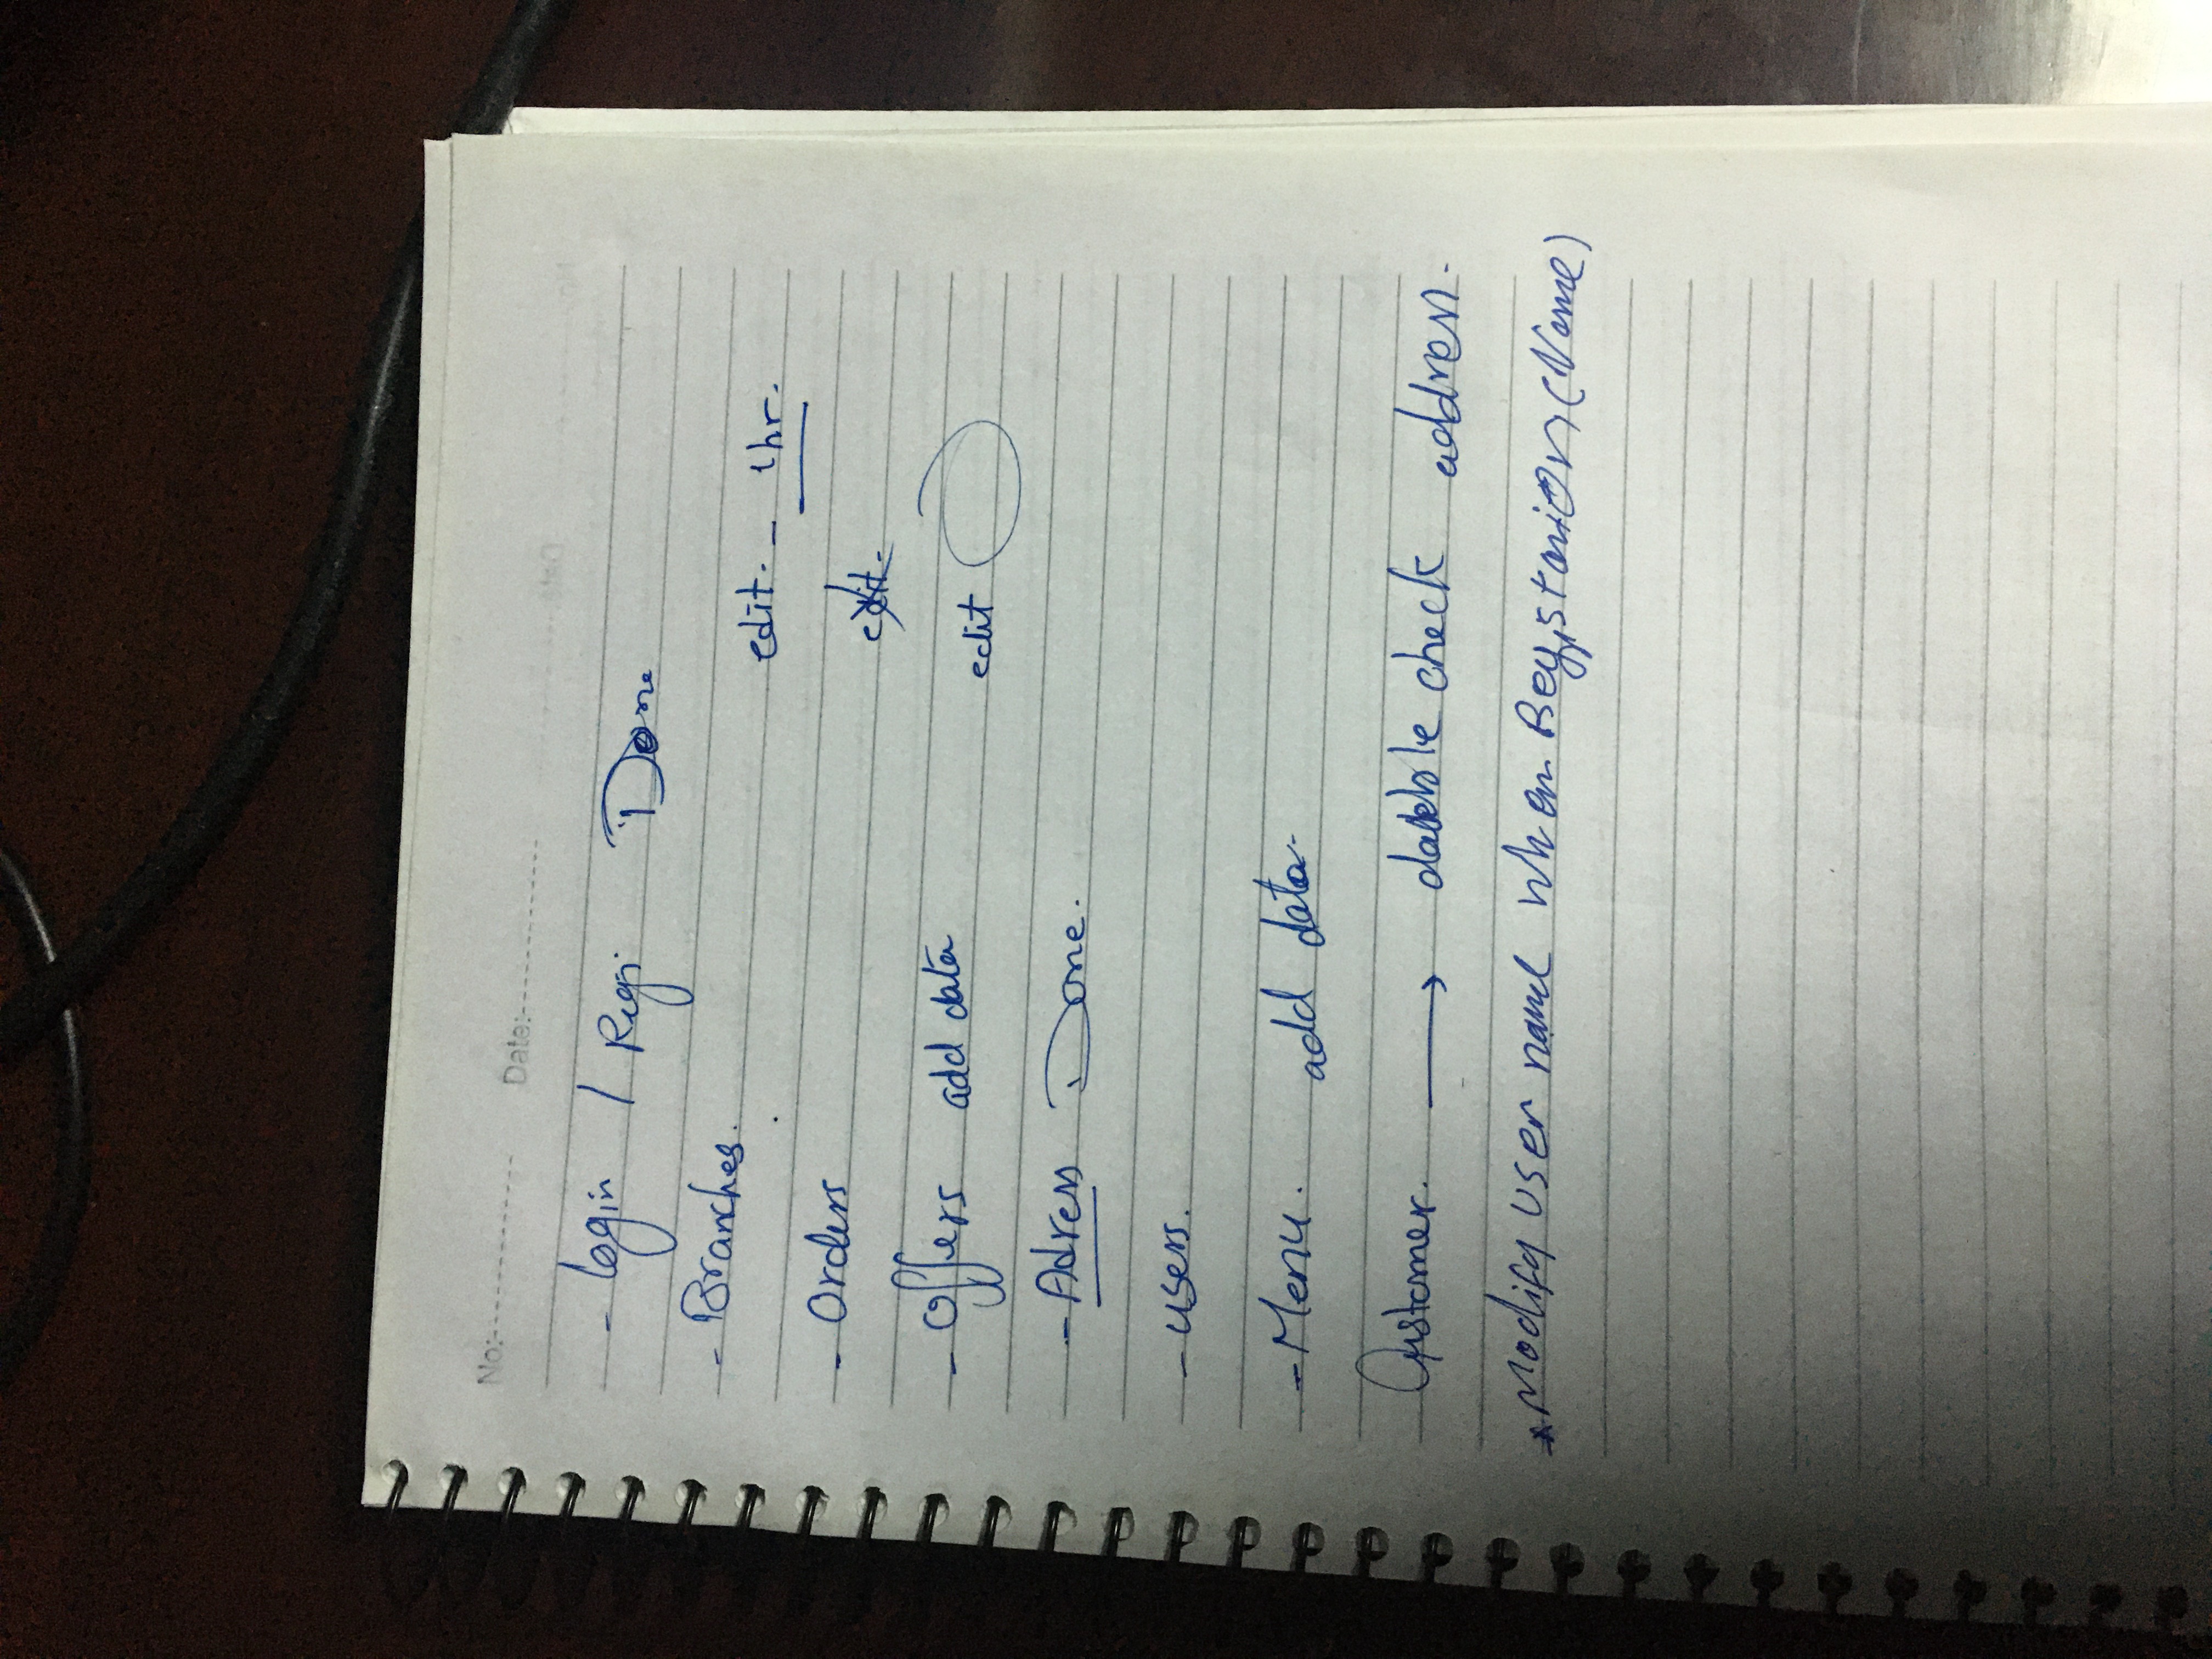 No:------------- Date:-------------
- login / Regi Done
- Branches.
edit. - 1hr.
- Orders
edit.
- Offers add data edit
- Adress Done.
- users.
- Menu. add data.
Customer. → double check address.
* Modify user name when Registarion (Name)